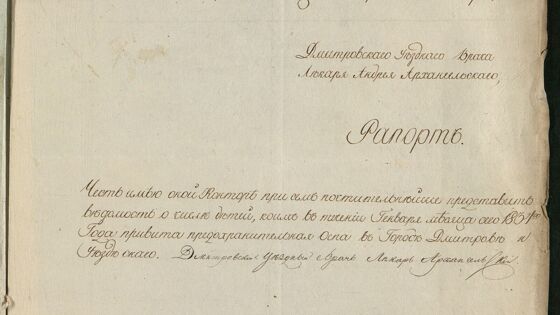 Дмитровскаго Уѣзднаго Врача
Лѣкаря Андрея Архангельскаго,
Рапортъ.
Честь имѣю оной Конторѣ при семъ почтительнѣйше представить
вѣдомость о числѣ дѣтей, коимъ въ теченіи Генваря мѣсяца сего
Года привита предохранительная Оспа въ Городѣ Дмитровѣ и
Уѣздѣ онаго. Дмитровской уѣздный Врачь Лѣкарь Архангельской